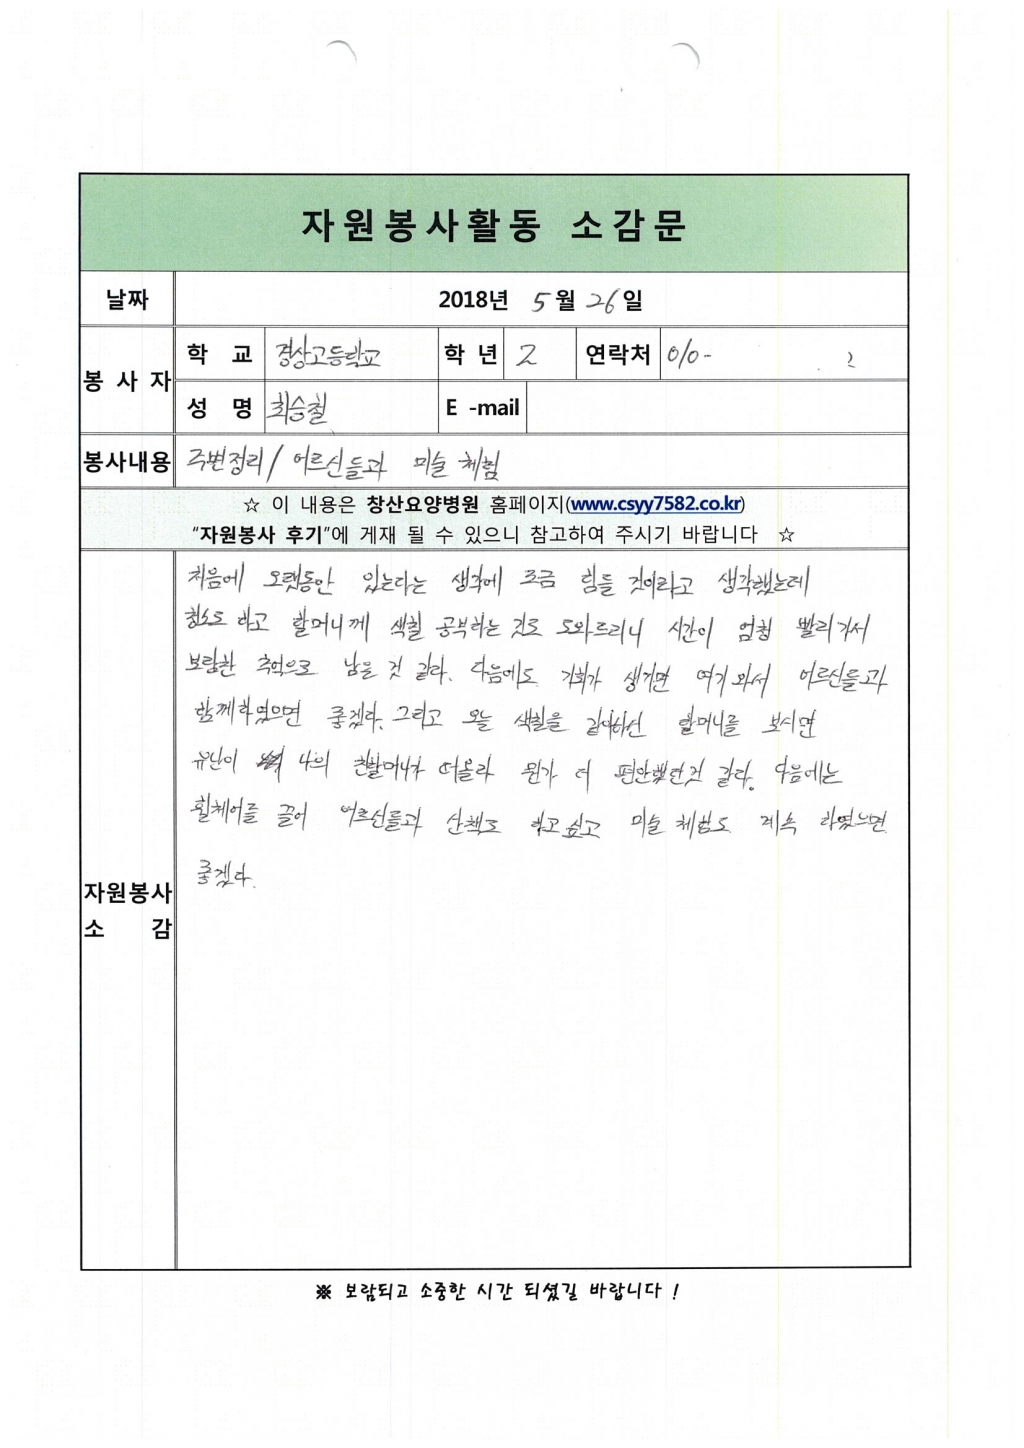 자원봉사활동 소감문
날짜 2018년 5월 26일
봉사자 학 교 경상고등학교 학년 2 연락처 010-
성 명 최승철 E -mail
봉사내용 주변정리/ 어르신들과 미술 체험
☆ 이 내용은 창산요양병원 홈페이지(www.csyy7582.co.kr)
"자원봉사 후기"에 게재 될 수 있으니 참고하여 주시기 바랍니다 ☆
자원봉사 소 감
처음에 오랫동안 있는다는 생각에 조금 힘들 것이라고 생각했는데
청소도 하고 할머니께 색칠 공부하는 것도 도와드리니 시간이 엄청 빨리가서
보람찬 추억으로 남을 것 같다. 다음에도 기회가 생기면 여기 와서 어르신들과
함께하였으면 좋겠다. 그리고 오늘 색칠을 같이하신 할머니를 보시면
유난이 나의 친할머니가 떠올라 뭔가 더 편안했던것 같다. 다음에는
휠체어를 끌어 어르신들과 산책도 하고 싶고 미술 체험도 계속 하였으면
좋겠다.
※ 보람되고 소중한 시간 되셨길 바랍니다 !